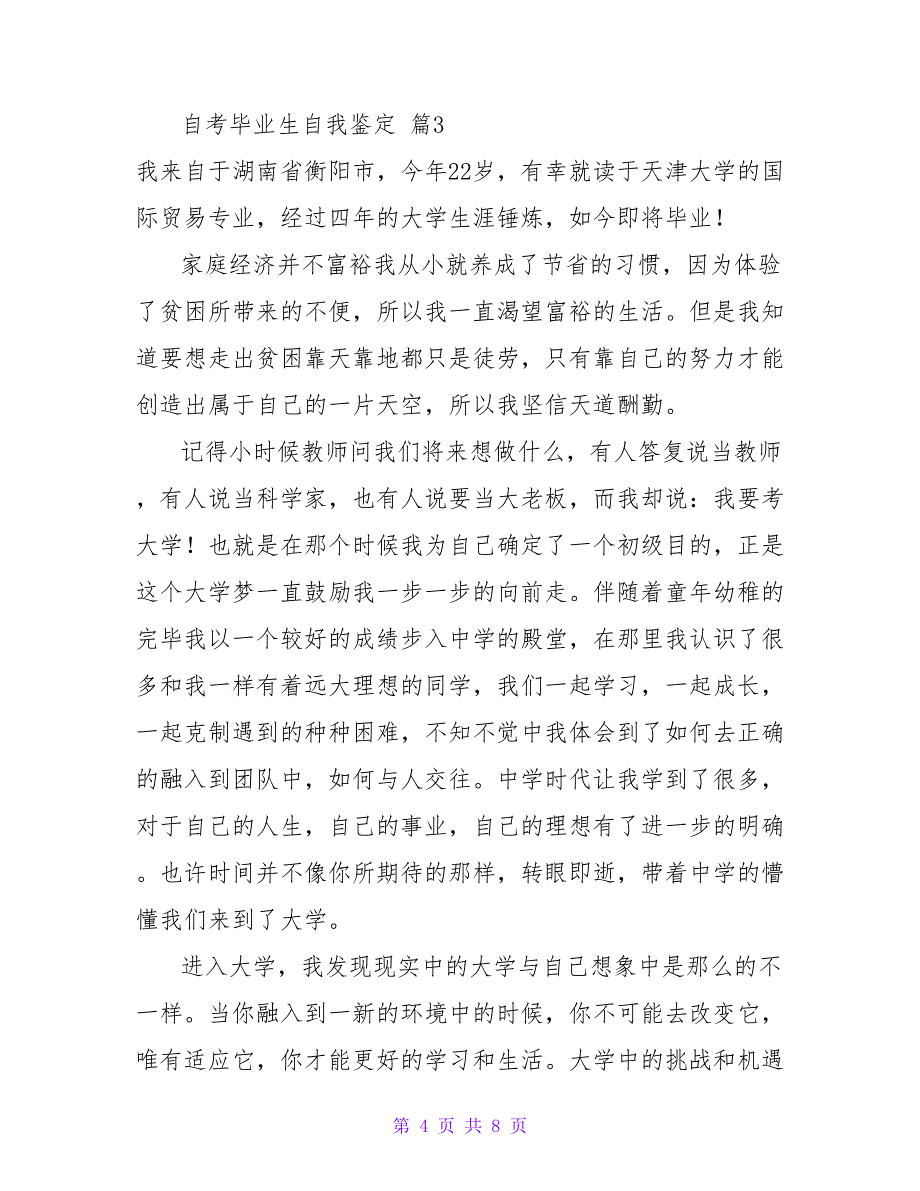 自考毕业生自我鉴定 篇3
我来自于湖南省衡阳市，今年22岁，有幸就读于天津大学的国
际贸易专业，经过四年的大学生涯锤炼，如今即将毕业！
家庭经济并不富裕我从小就养成了节省的习惯，因为体验
了贫困所带来的不便，所以我一直渴望富裕的生活。但是我知
道要想走出贫困靠天靠地都只是徒劳，只有靠自己的努力才能
创造出属于自己的一片天空，所以我坚信天道酬勤。
记得小时候教师问我们将来想做什么，有人答复说当教师
，有人说当科学家，也有人说要当大老板，而我却说：我要考
大学！也就是在那个时候我为自己确定了一个初级目的，正是
这个大学梦一直鼓励我一步一步的向前走。伴随着童年幼稚的
完毕我以一个较好的成绩步入中学的殿堂，在那里我认识了很
多和我一样有着远大理想的同学，我们一起学习，一起成长，
一起克制遇到的种种困难，不知不觉中我体会到了如何去正确
的融入到团队中，如何与人交往。中学时代让我学到了很多，
对于自己的人生，自己的事业，自己的理想有了进一步的明确
。也许时间并不像你所期待的那样，转眼即逝，带着中学的懵
懂我们来到了大学。
进入大学，我发现现实中的大学与自己想象中是那么的不
一样。当你融入到一新的环境中的时候，你不可能去改变它，
唯有适应它，你才能更好的学习和生活。大学中的挑战和机遇
第 4 页 共 8 页